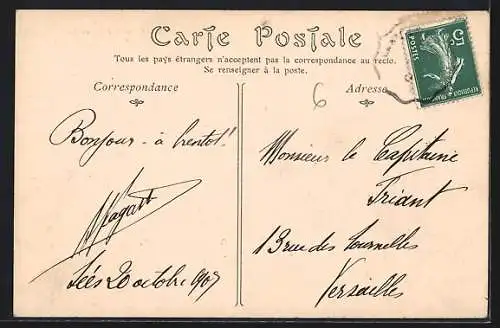 Carte Postale
Tous les pays étrangers n'acceptent pas la correspondance au recto.
Se renseigner à la poste.
Correspondance
Adresse
6
5c
POSTES
Bonjour - à bientôt!
Monsieur le Capitaine
Triant
13 rue des Tournelles
Versailles
Sées 20 octobre 1907